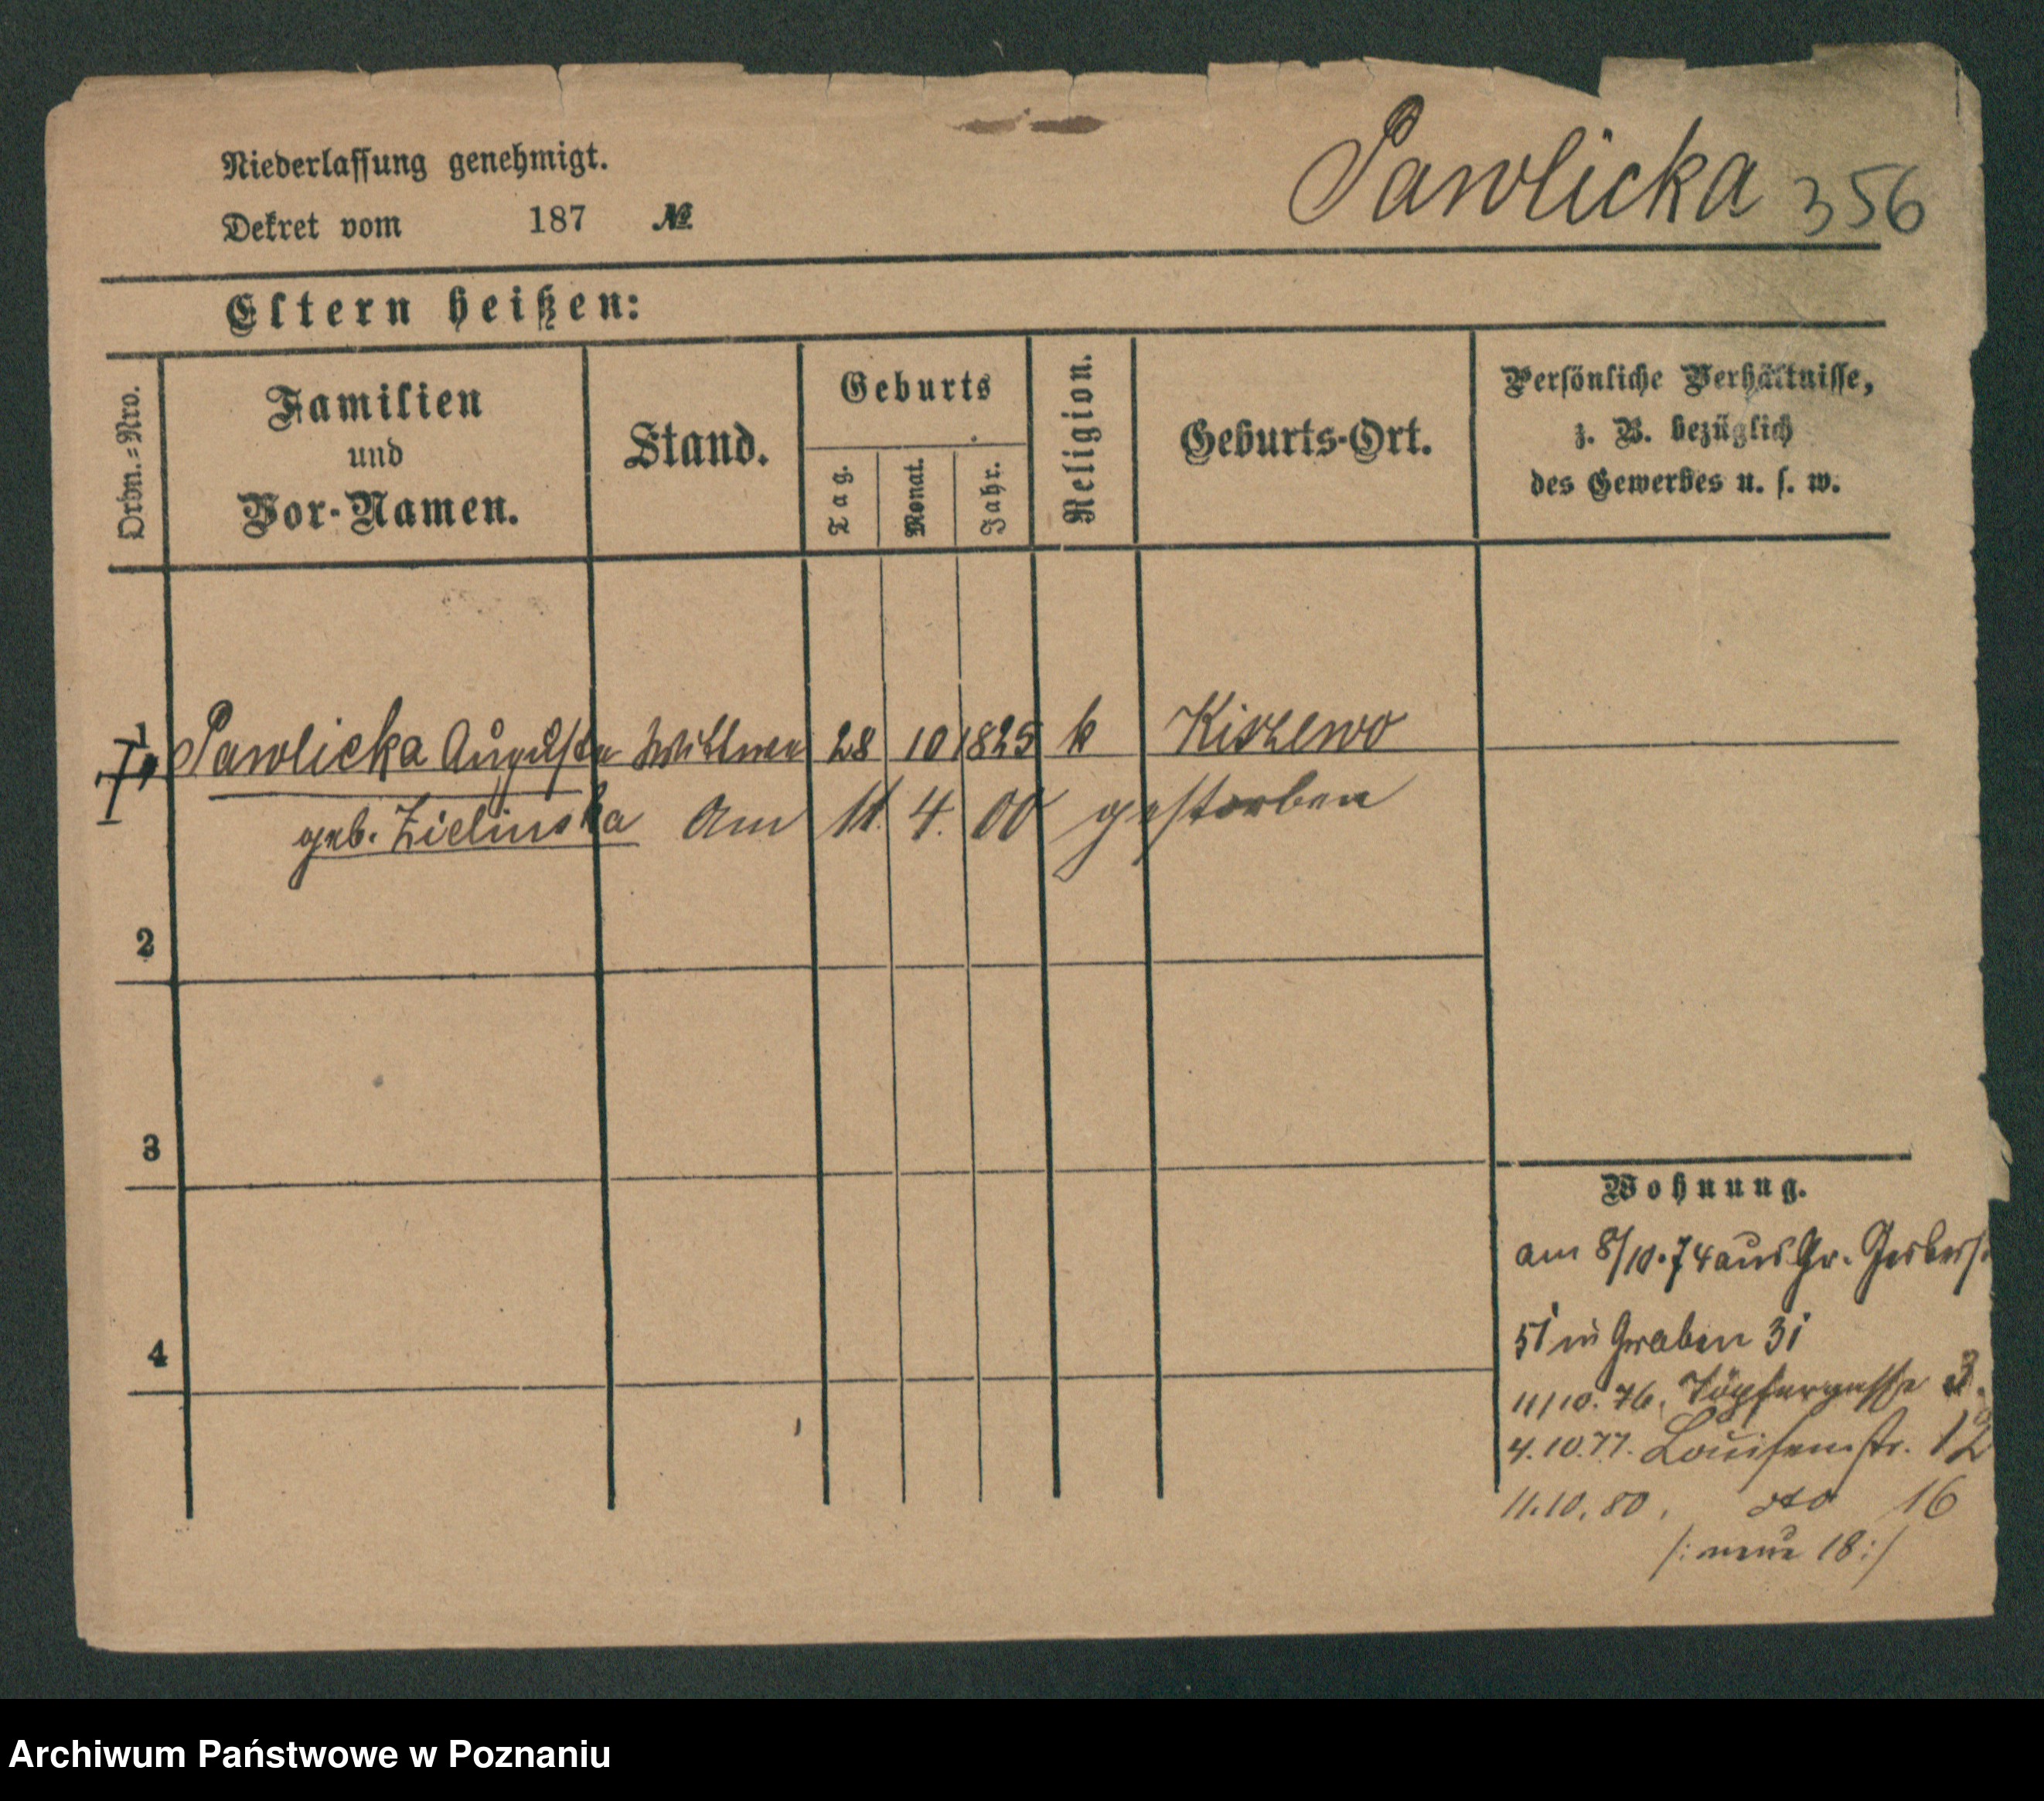 Niederlassung genehmigt.
Dekret vom 187 №
Pawlicka 356
Eltern heißen:
Ordn.=Nro.
Familien
und
Vor-Namen.
Stand.
Geburts
Tag.
Monat.
Jahr.
Religion.
Geburts-Ort.
Persönliche Verhältnisse,
z. B. bezüglich
des Gewerbes u. s. w.
1 Pawlicka Augusta Wittwe 28 10 1825 k Kiszewo
geb. Zielinska Am 11. 4. 00 gestorben
2
3
4
Wohnung.
am 8/10.74 aus Gr. Gerberst.
51 in Graben 31
11/10.76. Töpfergasse 3.
4.10.77. Louisenstr. 12
11.10.80. dto 16
/: neue 18 :/
Archiwum Państwowe w Poznaniu